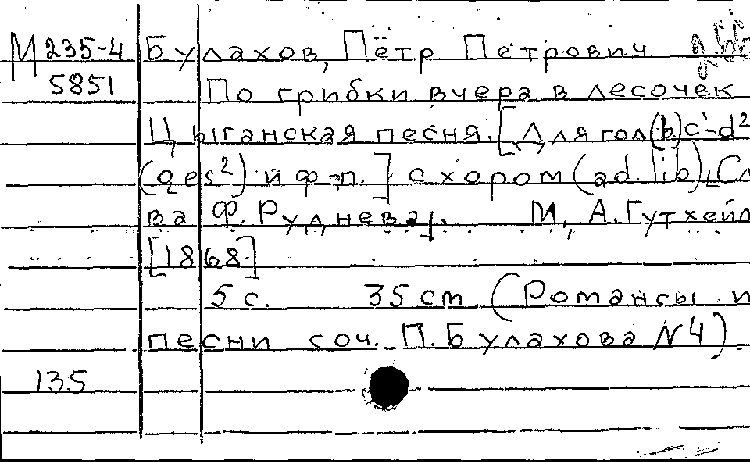 М 235-4 Булахов, Пётр Петрович
5851 По грибки вчера в лесочек
Цыганская песня. [Для гол. (h) c¹-d²
(ges²) и ф-п.] с хором (ad. lib). Сл
ва Ф. Руднева. М., А. Гутхейл
[1868]
5 с. 35 см (Романсы и
песни соч. П. Булахова N4)
135